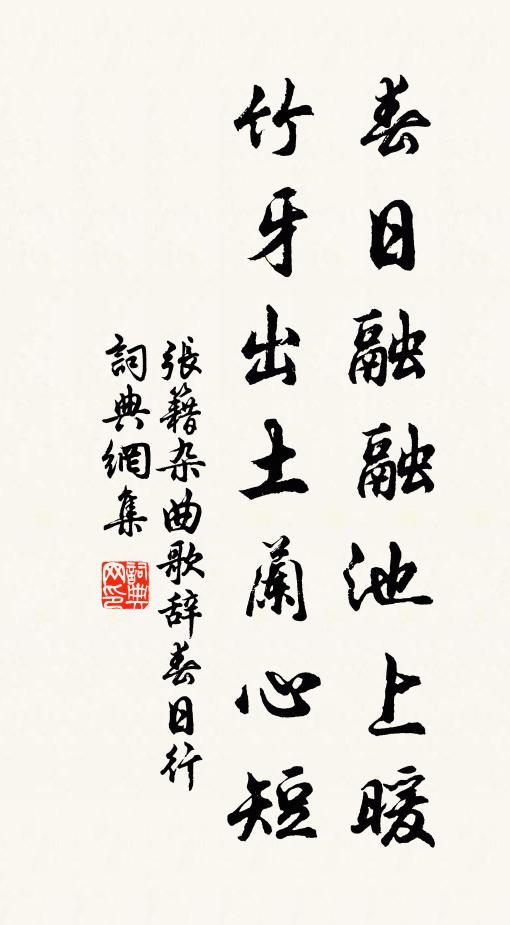 春日融融池上暖
竹牙出土蘭心短
張籍杂曲歌辞春日行
詞典網集
詞典网印